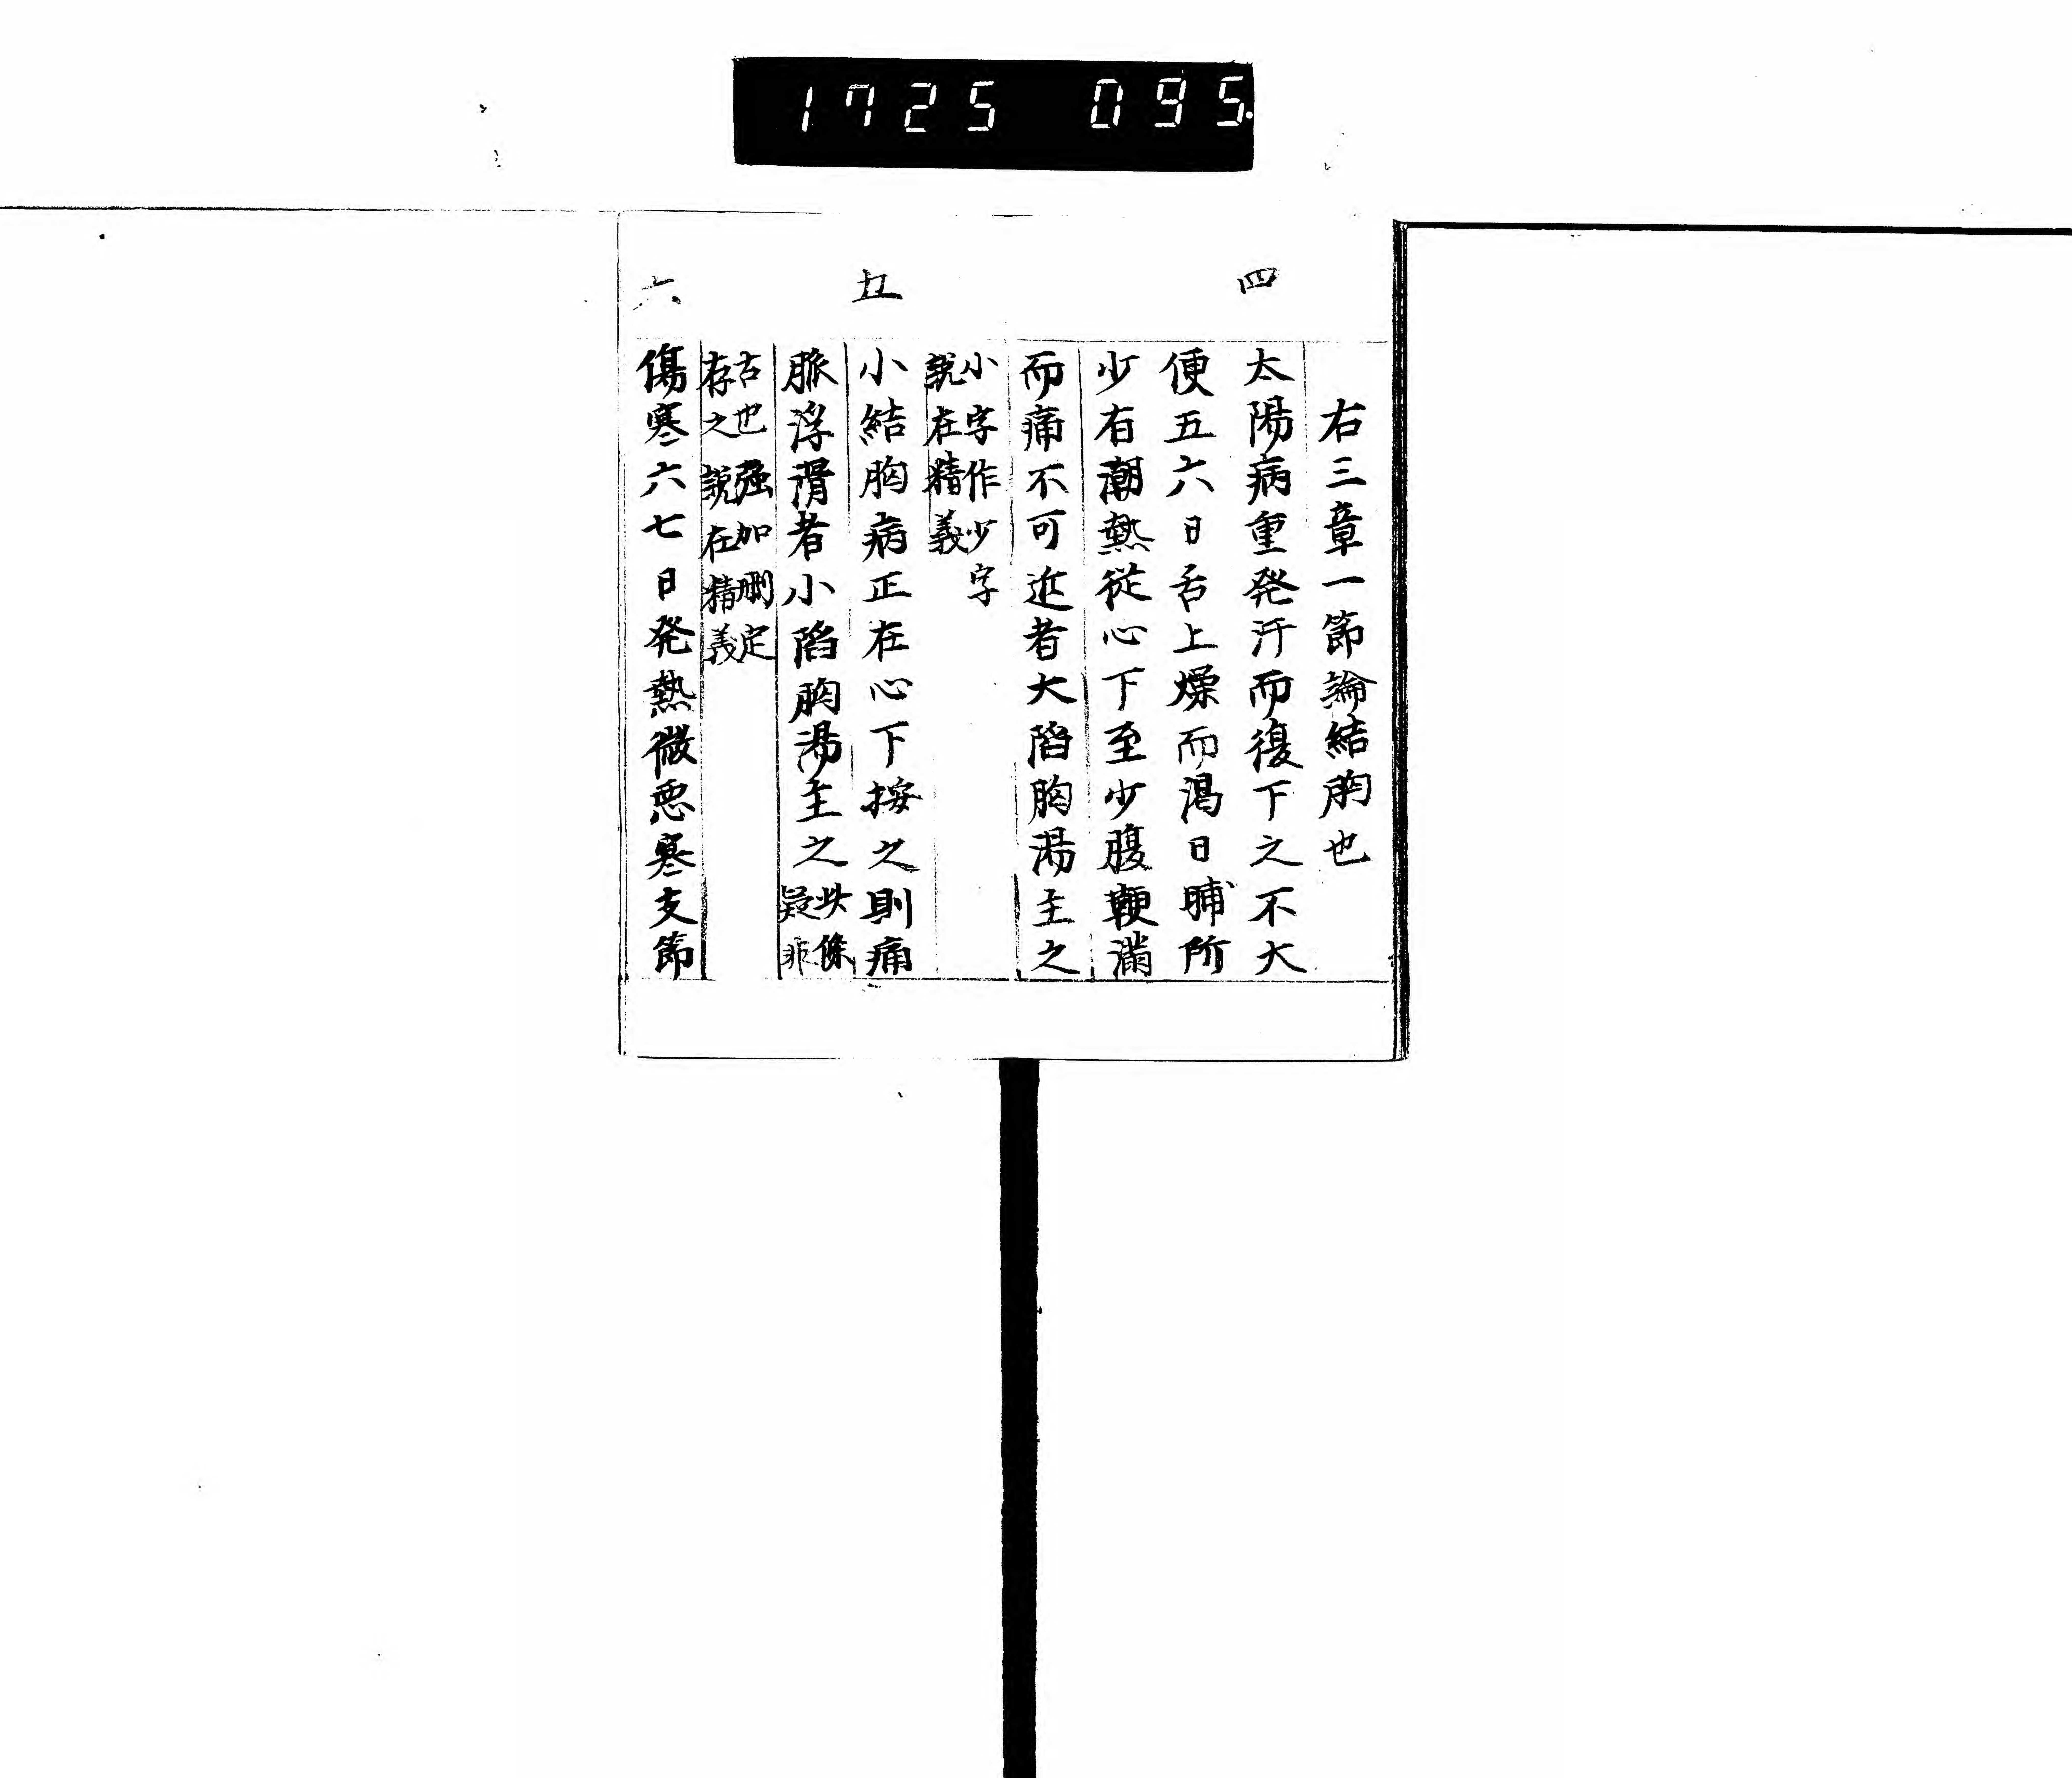 1725 095
右三章一節論結胸也
四
太陽病重発汗而復下之不大
便五六日舌上燥而渴日晡所
少有潮熱從心下至少腹鞕滿
而痛不可近者大陷胸湯主之
小字作少字
說在精義
五
小結胸病正在心下按之則痛
脈浮滑者小陷胸湯主之此條
疑非
古也强加刪定
存之說在精義
六
傷寒六七日発熱微惡寒支節